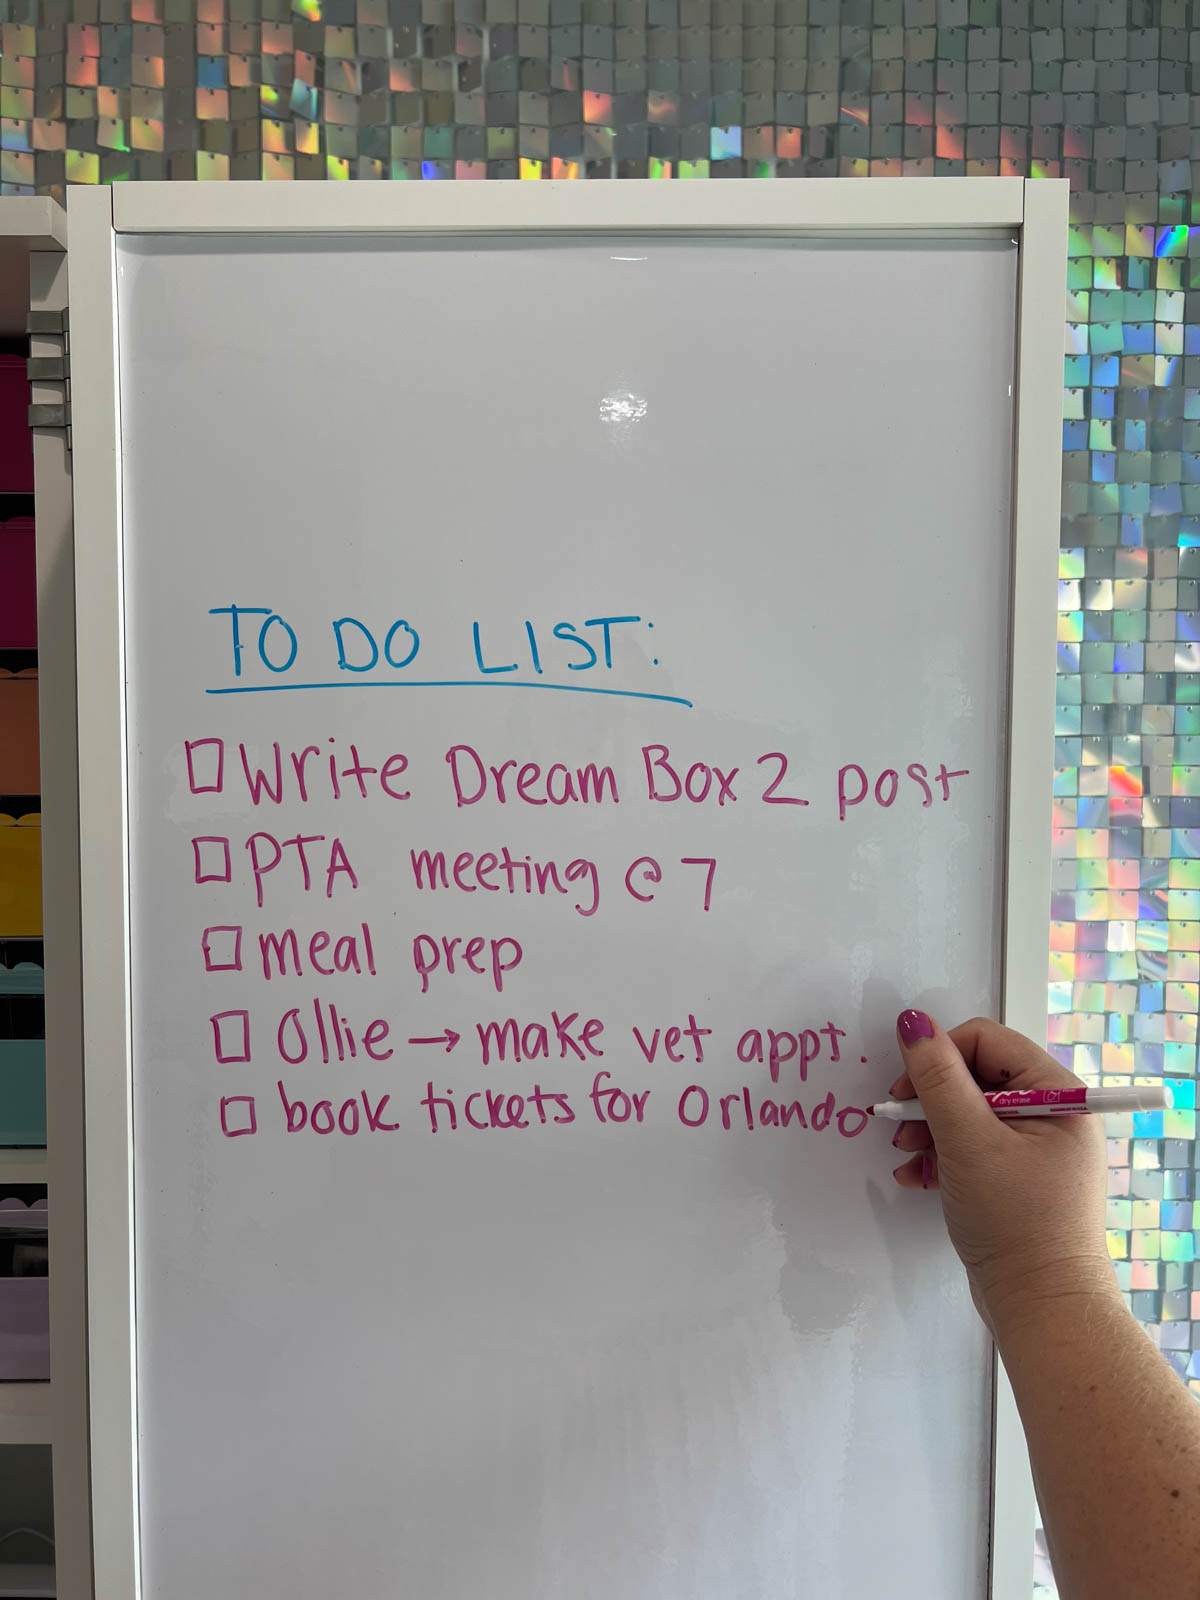 TO DO LIST:
Write Dream Box 2 post
PTA meeting @ 7
meal prep
Ollie → make vet appt.
book tickets for Orlando
dry erase